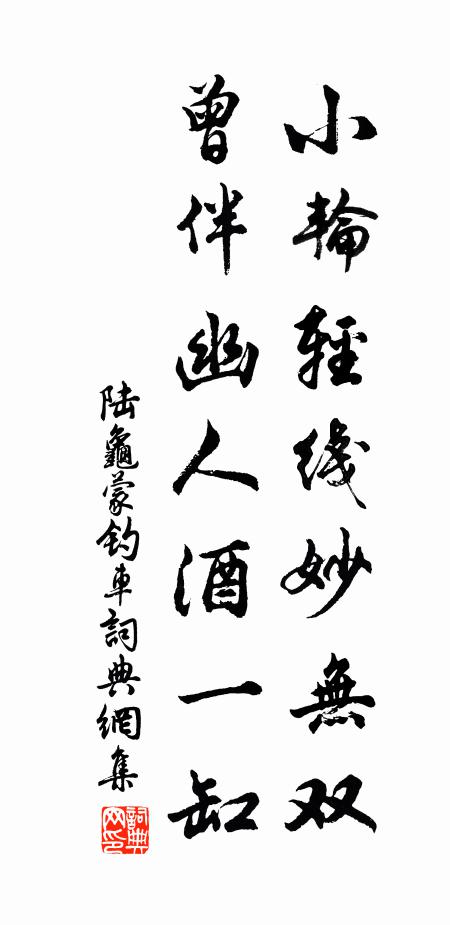 小輪輕线妙無双
曾伴幽人酒一缸
陆龜蒙钓車詞典網集
詞典网印